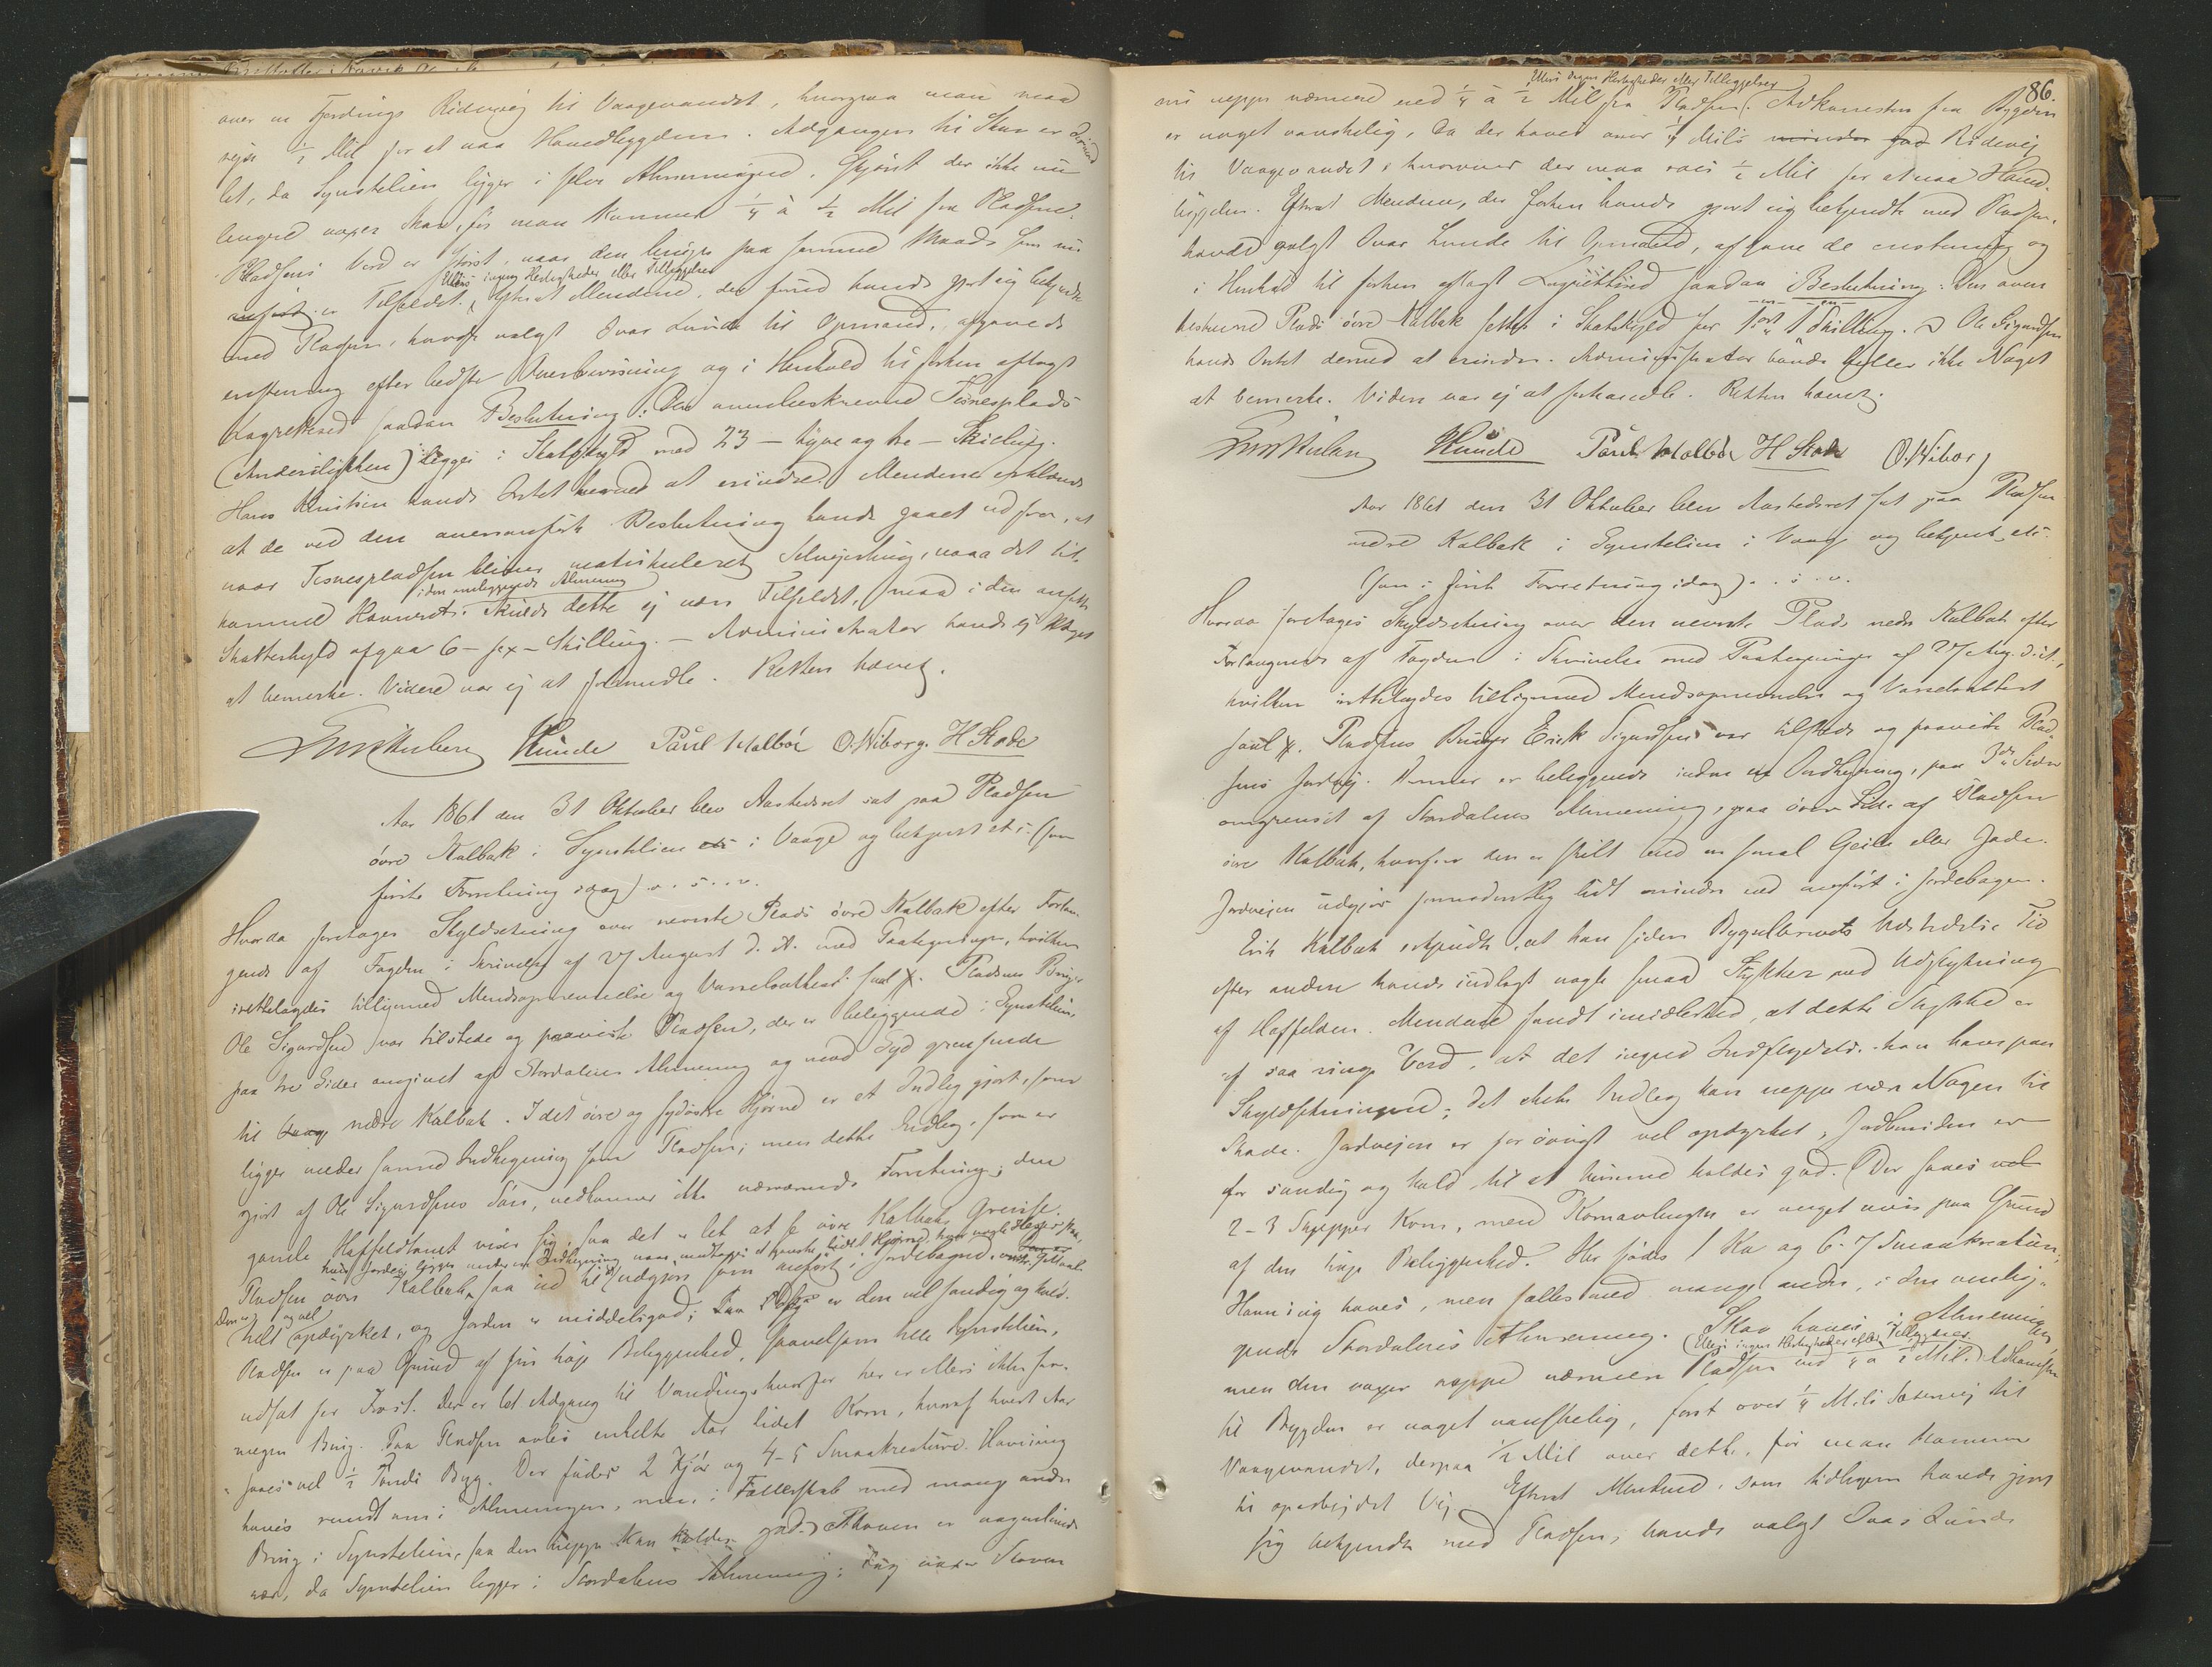 over en Fjerdings Ridevej til Vaagevandet, hvorpaa man maa
rejse ½ Mil for at naa Hovedbygden. Adgangen til Skov er
let, da Synstelien ligger i selve Almenningen. Skjønt der ikke nu
længere voxer Skov, før man kommer ¼ à ½ Mil fra Pladsene.
Pladsens Værd er størst, naar den bruges paa samme Maade som nu
er Tilfældet. Efterat Mændene, der forud havde gjort sig bekjendt
Ellers ingen Herligheder eller Tilleggelser
med Pladsen, havde valgt Ivar Lunde til Opmand, afgave de
enstemmig efter bedste Overbevisning og i Henhold til forhen aflagt
Lagrettesed saadan Beslutning: Den ovenbeskrevne Tesnesplads
legges i Skatskyld med 23 - tyve og tre - Skilling.
Hans Knutsen havde Intet herved at erindre. Mændene erklærede
at de ved den ovenanførte Beslutning havde gaaet ud fra, at
naar Tesnespladsen bliver matrikuleret Selvejerbrug, vaar det til-
kommende Havneret. Skulde dette ej være Tilfældet, maa i den ansatte
i den omliggende Almenning
Skatteskyld afgaa 6 - sex - Skilling. - Administrator havde ej Noget
at bemærke. Videre var ej at forhandle. Retten hævet.
Lunde Paul Valbör O. Wiborg. H Stade
Aar 1861 den 31 Oktober blev Aastedsret sat paa Pladsen
övre Kalbak i Synstelien i Vaage og betjent etc. (som
første Forretning idag) o. s. v.
Hvorda foretages Skyldsetning over nevnte Plads övre Kalbak efter Forlan-
gende af Fogden i Skrivelse af 27 August d. A. med Paategninger, hvilken
irettelagdes tilligemed Mændsopnevnelse og Varselsattest. Pladsens Bruger
Ole Sigurdsen var tilstede og paaviste Pladsen, der er beliggende i Synstelien,
paa tre Sider omgivet af Stordalens Almenning og mod Syd grensende
til nedre Kalbak. I det övre og sydöstre Hjørne er et Indleg gjort, som
ligger under samme Indhegning som Pladsen; men dette Indleg, som er
gjort af Ole Sigurdsens Søn, vedkommer ikke nærværende Forretning; den
gamle Haffeldtomt viser sig, saa det er let at se övre Kalbaks Grense.
Pladsen övre Kalbak saa ud til udgjøre som anført i Jordebogen.
helt opdyrket, og Jorden er middelsgod; er den vel sandig og kold.
Den er og vel
Pladsen er paa Grund af sin høje Beliggenhed, saavelsom hele Synstelien,
udsat for Frost. Der er let Adgang til Vanding, hvorfor her er ellers ikke saa-
megen Brug. Paa Pladsen avles enkelte Aar lidet Korn, hvoraf hvert Aar
saaes vel ½ Tønde Byg. Der fødes 2 Kjør og 4-5 Smaakreature. Havning
haves rundt om i Almenningen, men i Fællesskab med mange andre
Brug i Synstelien, saa den neppe kan kaldes god. Skoven er nogenlunde
nær, da Synstelien ligger i Stordalens Almenning; dog voxer Skoven
86.
Ellers ingen Herligheder eller Tilleggelser
nu neppe nærmere end ¼ à ½ Mil fra Pladsen. Adkomsten fra Bygden
er noget vanskelig, da der haves over ¼ Mils mindre god Ridevej
til Vaagevandet, hvorover der maa roes ½ Mil for at naa Hoved-
bygden. Efterat Mændene, der forhen havde gjort sig bekjendt med Pladsen,
havde valgt Ivar Lunde til Opmand, afgave de enstemmig og
i Henhold til forhen aflagt Lagrettesed saadan Beslutning: Den oven
beskrevne Plads övre Kalbak settes i Skatskyld for 1 Ort 1 Skilling. Ole Sigurdsen
havde Intet derved at erindre. Administrator havde heller ikke Noget
at bemærke. Videre var ej at forhandle. Retten hævet.
Lunde Paul Valbör H Stade O. Wiborg
Aar 1861 den 31 Oktober blev Aastedsret sat paa Pladsen
nedre Kalbak i Synstelien i Vaage og betjent etc.
(som i første Forretning idag) o. s. v.
Hvorda foretages Skyldsetning over den nevnte Plads nedre Kalbak efter
Forlangende af Fogden i Skrivelse med Paategninger af 27 Aug. d. A.,
hvilken irettelagdes tilligemed Mændsopnevnelse og Varselsattest
Pladsens Bruger Erik Sigurdsen var tilstede og paaviste Plad-
sens Jordvej. Denne er beliggende inden en Indhegning, paa 3de Sider
omgrenset af Stordalens Almenning, paa övre Side af Pladsen
övre Kalbak, hvorfra den er skilt ved en smal Geil eller Jade.
Jordvejen udgjør formodentlig lidt mindre end anført i Jordebogen.
Erik Kalbak erkjendte, at han siden Bygselbrevets Udstedelse Tid
efter anden havde indlagt nogle smaa Stykker ved Udflytning
af Haffelden. Mændene fandt imidlertid, at dette Stykke er
af saa ringe Værd, at det ingen Indflydelse kan have paa
Skyldsetningen; det dette Indleg kan neppe være Nogen til
Skade. Jordvejen er for övrigt vel opdyrket, Jordbunden er
for sandig og kold til at kunne kaldes god. Der saaes vel
2-3 Skjepper Korn, men Kornavlingen er meget uvis paa Grund
af den høje Beliggenhed. Her fødes 1 Ko og 6-7 Smaakreature.
Havning haves, men fælles med mange andre, i den omlig-
gende Stordalens Almenning. Skov haves i Almenningen
men den voxer neppe nærmere Pladsen end ¼ à ½ Mil. Adkomsten
(Ellers ingen Herligheder eller Tilleggelser
til Bygden er noget vanskelig, først over ¼ Mils Sætervej til
Vaagevandet, derpaa ½ Mil over dette, før man kommer
til oparbejdet Vej. Efterat Mændene, som tidligere havde gjort
sig bekjendt med Pladsen, havde valgt Ivar Lunde